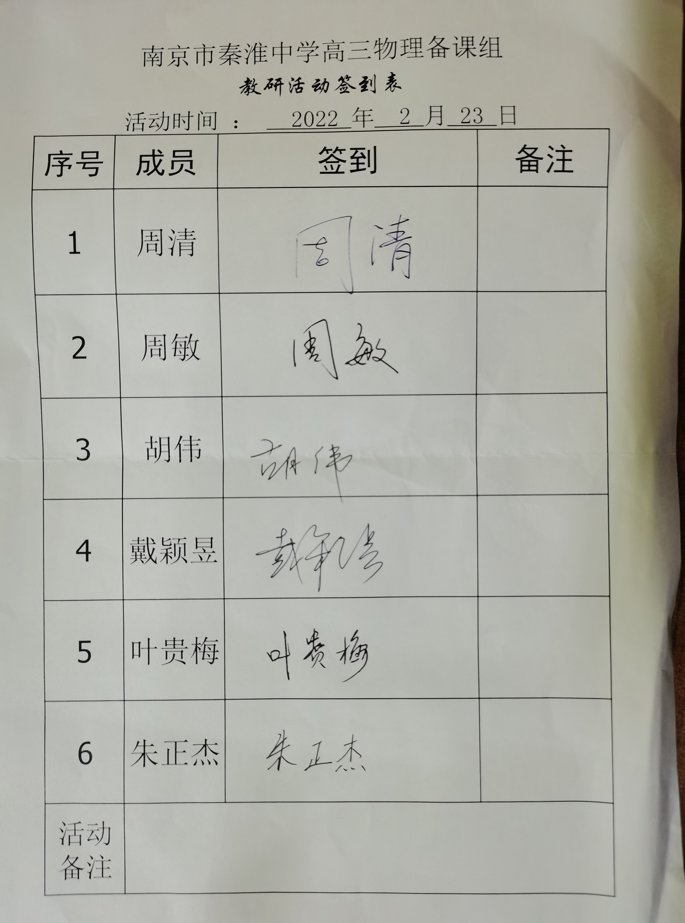 南京市秦淮中学高三物理备课组
教研活动签到表
活动时间 ： 2022 年 2 月 23 日
序号 成员 签到 备注
1 周清 周清
2 周敏 周敏
3 胡伟 胡伟
4 戴颖昱 戴颖昱
5 叶贵梅 叶贵梅
6 朱正杰 朱正杰
活动
备注